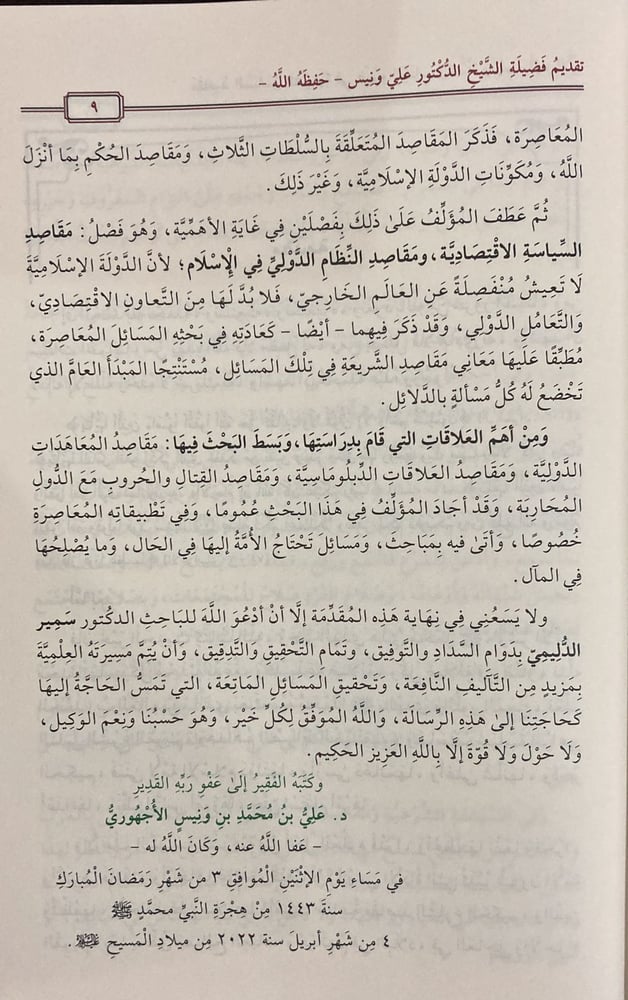 تقديمُ فَضِيلَةِ الشَّيْخِ الدُّكْتُورِ عَلِيّ وَنِيس - حَفِظَهُ اللَّهُ -
٩
المُعَاصِرَة، فَذَكَرَ المَقَاصِدَ المُتَعَلِّقَةَ بِالسُّلْطَاتِ الثَّلَاثِ، وَمَقَاصِدَ الحُكْمِ بِمَا أَنْزَلَ
اللَّهُ، وَمُكَوِّنَاتِ الدَّوْلَةِ الإِسْلَامِيَّة، وَغَيْرَ ذَلِكَ.
ثُمَّ عَطَفَ المُؤَلِّفُ عَلَىٰ ذَلِكَ بِفَصْلَيْنِ فِي غَايَةِ الأَهَمِّيَّة، وَهُوَ فَصْلُ: مَقَاصِدِ
السِّيَاسَةِ الاقْتِصَادِيَّة، وَمَقَاصِدِ النِّظَامِ الدَّوْلِيِّ فِي الإِسْلَام؛ لأنَّ الدَّوْلَةَ الإِسْلَامِيَّةَ
لَا تَعِيشُ مُنْفَصِلَةً عَنِ العَالَمِ الخَارِجِيّ، فَلا بُدَّ لَهَا مِنَ التَّعَاونِ الاقْتِصَادِيّ،
وَالتَّعَامُلِ الدَّوْلِي، وَقَدْ ذَكَرَ فِيهِمَا - أَيْضًا - كَعَادَتِهِ فِي بَحْثِهِ المَسَائِلَ المُعَاصِرَة،
مُطَبِّقًا عَلَيْهَا مَعَانِي مَقَاصِدِ الشَّرِيعَةِ فِي تِلْكَ المَسَائِل، مُسْتَنْتِجًا المَبْدَأَ العَامَّ الذي
تَخْضَعُ لَهُ كُلُّ مَسْأَلةٍ بالدَّلائِل.
وَمِنْ أَهَمِّ العَلاقَاتِ التي قَامَ بِدِرَاسَتِهَا، وَبَسَطَ البَحْثَ فِيهَا: مَقَاصِدُ المُعَاهَدَاتِ
الدَّوْلِيَّة، وَمَقَاصِدُ العَلاقَاتِ الدِّبلُومَاسِيَّة، وَمَقَاصِدُ القِتَالِ والحُروبِ مَعَ الدُّولِ
المُحَارِبَة، وَقَدْ أَجَادَ المُؤَلِّفُ فِي هَذَا البَحْثِ عُمُومًا، وَفِي تَطْبِيقَاتِه المُعَاصِرَةِ
خُصُوصًا، وَأَتَىٰ فيه بِمَبَاحِثَ، وَمَسَائِلَ تَحْتَاجُ الأُمَّةُ إليهَا فِي الحَال، وَمَا يُصْلِحُهَا
فِي المَآل.
ولا يَسَعُنِي فِي نِهَايَة هَذِهِ المُقَدِّمَة إلَّا أنْ أدْعُوَ اللَّهَ للبَاحِثِ الدكتُور سَمِير
الدُّلِيمِيّ بِدَوَامِ السَّدَادِ والتَّوفِيق، وَتَمَامِ التَّحْقِيقِ وَالتَّدقِيق، وَأَنْ يُتِمَّ مَسِيرَتَهُ العِلْمِيَّةَ
بِمَزِيدٍ مِن التَّآلِيفِ النَّافِعَة، وَتَحْقِيقِ المَسَائِلِ المَاتِعَة، التي تَمَسُّ الحَاجَّةُ إليهَا
كَحَاجَتِنَا إلىٰ هَذِهِ الرِّسَالَة، وَاللَّهُ المُوَفِّقُ لِكُلِّ خَيْر، وَهُوَ حَسْبُنَا وَنِعْمَ الوَكِيل،
وَلَا حَوْلَ وَلَا قُوَّةَ إلَّا بِاللَّهِ العَزِيزِ الحَكِيم.
وكَتَبَهُ الفَقِيرُ إلَىٰ عَفْوِ رَبِّهِ القَدِيرِ
د. عَلِيُّ بنُ مُحَمَّدِ بنِ وَنِيسٍ الأُجْهُورِيُّ
- عَفا اللَّهُ عنه، وَكَانَ اللَّهُ له -
في مَسَاءِ يَوْمِ الإِثْنَيْنِ الْمُوافِقِ ٣ من شَهْرِ رَمَضَانَ الْمُبَارَكِ
سنة ١٤٤٣ مِنْ هِجْرَةِ النَّبِيِّ محمَّدٍ ﷺ
٤ مِن شَهْرِ أبريلَ سنة ٢٠٢٢ مِن مِيلادِ الْمَسِيحِ ﷺ.